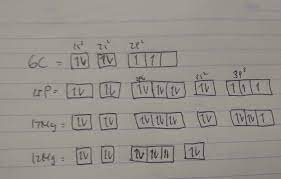 1s² 2s² 2p²
6C = ↑↓ ↑↓ ↑ ↑
3s² 3p³
15P = ↑↓ ↑↓ ↑↓ ↑↓ ↑↓ ↑↓ ↑ ↑ ↑
17Mg = ↑↓ ↑↓ ↑↓ ↑↓ ↑↓ ↑↓ ↑↓ ↑↓ ↑
12Mg = ↑↓ ↑↓ ↑↓ ↑↓ ↑↓ ↑↓